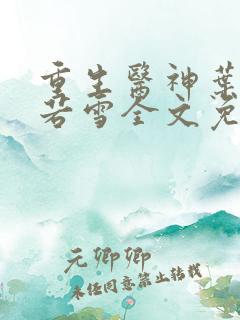 重生醫神葉
若雪全文免
元卿卿
未經同意禁止轉載